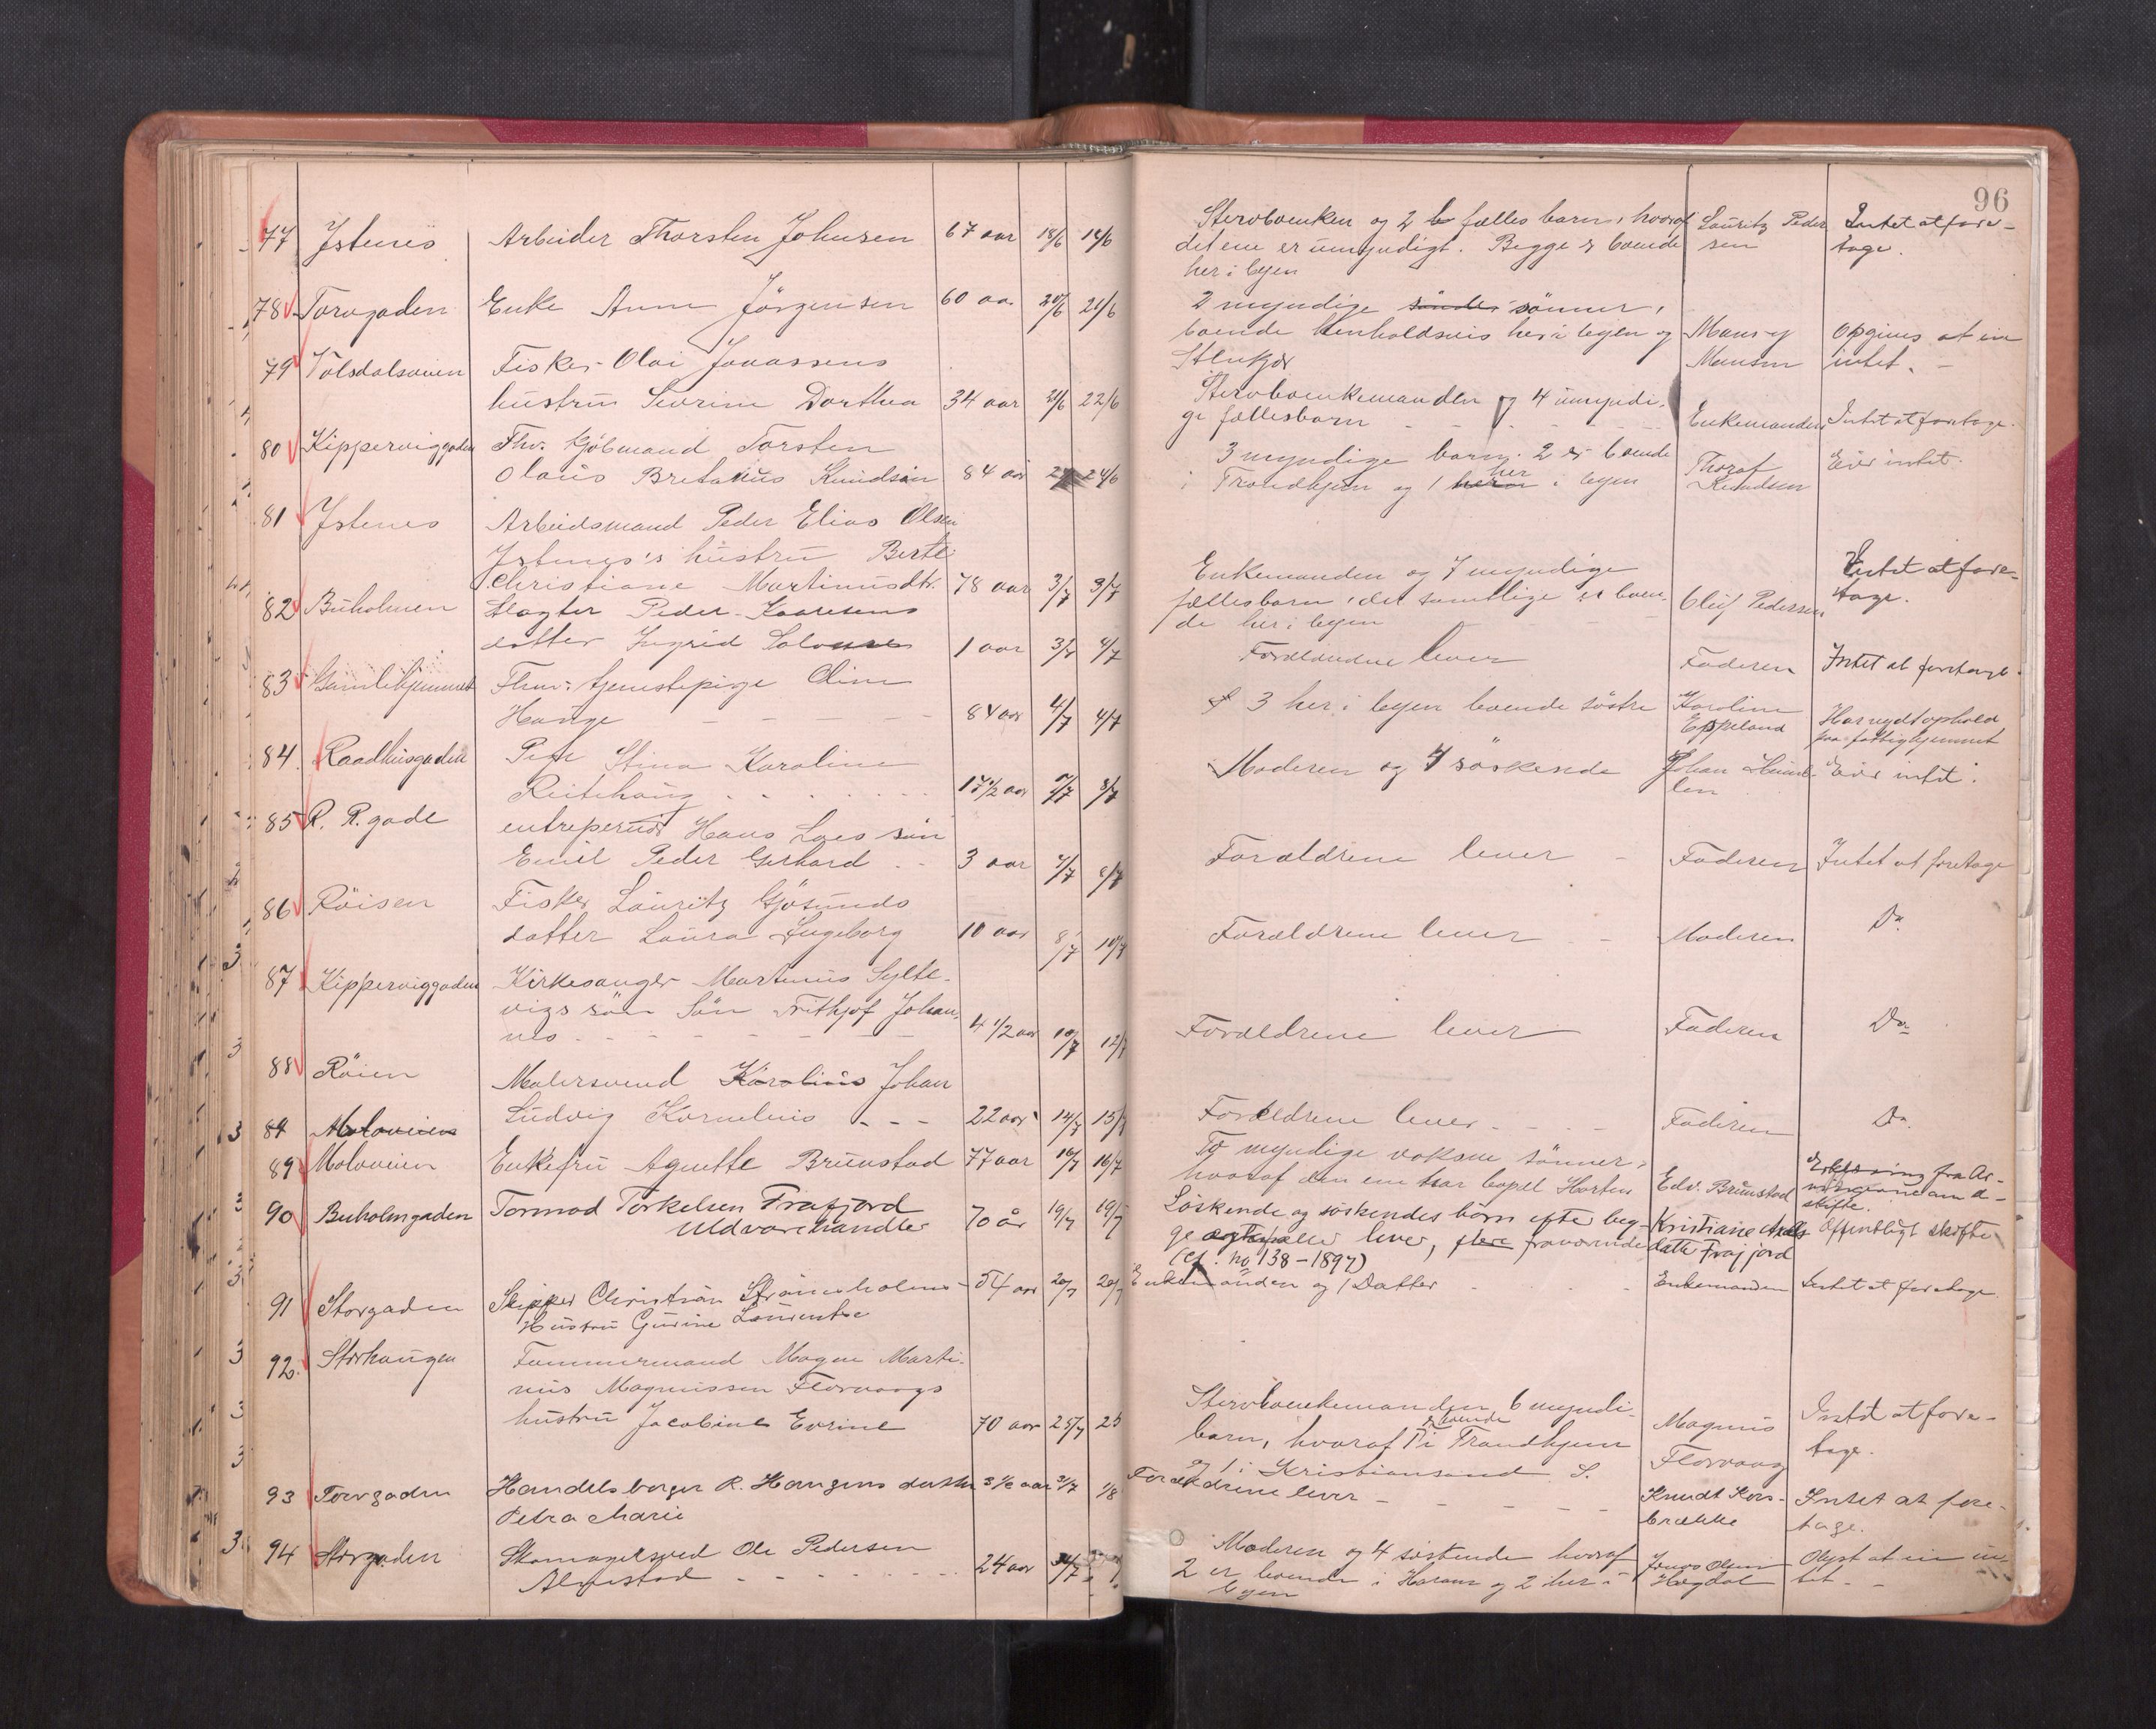 96
77 Istenes Arbeider Thorsten Johnsen 67 aar 18/6 19/6 Stervboenken og 2 fælles barn, hvoraf Lauritz Peder Intet at fore-
det ene er umyndigt. Begge er boende sen tage.
her i byen
78 Torvgaden Enke Anne Jörgensen 60 aar 20/6 21/6 2 myndige sönner,
boende henholdsvis her i byen og Mans og Opgives at eie
79 Volsdalsveien Fisker Olai Jonassens Stenkjær Mansen intet. -
hustru Severine Dorthea 34 aar 21/6 22/6 Stervboenkemanden og 4 umyndi-
ge fællesbarn - - - - Enkemanden Intet at foretage.
80 Kipperviggaden Fhv. Kjöbmand Torsten 3 myndige barn. 2 er boende
Olaus Knudsen 84 aar 24/6 i Trondhjem og 1 her i byen Knudsen Eier intet.
81 Istenes Arbeidsmand Peder Elias Olsen
Istenes's hustru Berte Enkemanden og 7 myndige Intet at fore-
Christiane Martinusdtr. 78 aar 3/7 3/7 fællesbarn, der samtlige er boen- Oluf Pedersen tage.
82 Buholmen Slagter Peder Kaaresens de her i byen
datter Ingrid 1 aar 3/7 4/7 Forældrene lever Faderen Intet at foretage.
83 Gamlehjemmet Fhv. tjenestepige Oline 3 her i byen boende söstre Karoline
Hauge - - - - 84 aar 4/7 4/7 Eppeland Har nydt ophold
paa fattighjemmet
84 Raadhusgaden Pige Stina Karoline Moderen og 4 söskende Johan Eier intet.
Reitehaug 17 1/2 aar 7/7 8/7 len
85 R. R. gade entreprenör Hans Loes sön
Emil Peder Gerhard 3 aar 7/7 8/7 Forældrene lever - Faderen Intet at foretage
86 Röisen Fisker Lauritz Gjösunds
datter Laura Ingeborg 10 aar 8/7 10/7 Forældrene lever - - Moderen Do
87 Kipperviggaden Kirkesanger Martinus Sylte-
vigs sön Sön Frithjof Johan-
nes - - - - 4 1/2 aar 10/7 12/7 Forældrene lever Faderen Do
88 Röien Malersvend Karolius Johan
Ludvig Kornelius - - - 22 aar 14/7 15/7 Forældrene lever - - - Faderen Do.
89 Moloveien
89 Moloveien Enkefru Agnette Brunstad 77 aar 16/7 16/7 To myndige voksne sönner, Erklæring fra Ar-
hvoraf den ene har bopæl Horten Edv. Brunstad vingerne om
skifte.
90 Buholmgaden Tormod Torkelsen Frafjord 70 år 19/7 19/7 Söskende og söskendes börn efter beg- Kristiane Offentligt skifte
Uldvarehandler ge ægtefæller lever, flere fraværende datter Frafjord
(Cf. no 138-1897)
91 Storgaden Skipper Christian Strömsholms 54 aar 20/7 20/7 Enkemanden og 1 Datter - - Enkemanden Intet at foretage.
Hustru Gurine Laurentse
92 Storhaugen Tømmermand Magne Marti-
nus Magnussen Flovaags Stervboenkemanden 6 myndi-
hustru Jacobine Evrine 70 aar 25/7 25 barn, hvoraf 1 er boende i Trondhjem Magnus Intet at fore-
og 1 i Kristiansand S. Flovaag tage.
93 Torvgaden Handelsborger R. Haugens datter 3 1/2 aar 31/7 1/8 Forældrene lever - - - - Knudt Kors- Intet at fore-
Petra Marie brække tage.
94 Storgaden Skomagersvend Ole Pedersen 24 aar 31/7 Moderen og 4 söskende hvoraf Jonas Olsen Oplyst at eie in-
Alnestad - - - - 2 er boende i Haram og 2 her i Hogdal tet. -
byen